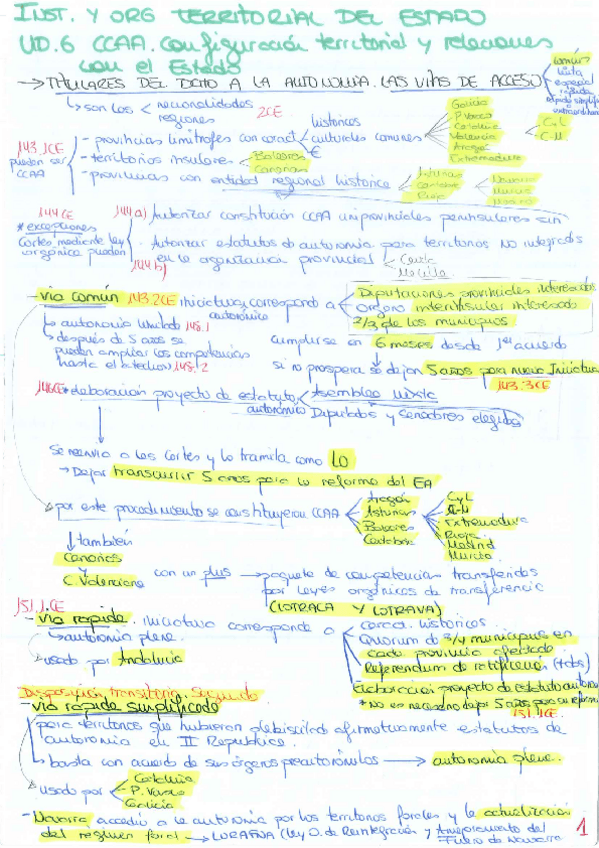 INST. Y ORG TERRITORIAL DEL ESTADO
UD.6 CCAA. Configuración territorial y relaciones
con el Estado
→ TITULARES DEL DCHO A LA AUTONOMÍA. LAS VÍAS DE ACCESO
común
mixta
especial
rápida
rápida simplif
extraordinaria
son las < nacionalidades
regiones 2CE
143.1CE
pueden ser
CCAA
- provincias limítrofes con caract
históricas
culturales comunes
€
Galicia
P Vasco
Cataluña
Valencia
Aragón
Extremadura
CyL
C-M
- territorios insulares
Baleares
Canarias
- provincias con entidad regional histórica
Asturias
Cantabria
Rioja
Navarra
Murcia
Madrid
144CE
* excepciones
Cortes mediante ley
orgánica pueden
144a) Autorizar constitución CCAA uniprovinciales peninsulares sin
144b) Autorizar estatutos de autonomía para territorios NO integrados
en la organización provincial
Ceuta
Melilla
- vía común 143.2CE iniciativa corresponde a
autonómica
Diputaciones provinciales interesadas
Órgano interinsular interesado
2/3 de los municipios
↳ autonomía limitada 148.1
↳ después de 5 años se
pueden ampliar las competencias
hasta el techo 148.2
cumplirse en 6 meses desde 1er acuerdo
si no prospera se dejan 5 años para nueva Iniciativa
143.3CE
146CE * elaboración proyecto de estatuto
autonómico
Asamblea mixta
Diputados y senadores elegidos
se reenvía a las Cortes y lo tramita como LO
→ Dejar transcurrir 5 años para la reforma del EA
→ por este procedimiento se constituyeron CCAA
Aragón
Asturias
Baleares
Cantabria
CyL
C-M
Extremadura
Rioja
Madrid
Murcia
↓ también
Canarias
y
C. Valenciana
con un plus → paquete de competencias transferidas
por leyes orgánicas de transferencia
(LOTRACA Y LOTRAVA)
151.1.CE
- vía rápida. iniciativa corresponde a
↳ autonomía plena.
usado por Andalucía
caract. históricos
Quorum de 3/4 municipios en
cada provincia afectada
Referendum de ratificación (+abs)
Elaboración proyecto de estatuto autonom
* No es necesario dejar 5 años para su reforma
151.1.CE
Disposición transitoria Segunda
- vía rápida simplificada
para territorios que hubieran plebiscitado afirmativamente estatutos de
autonomía en II República
↳ basta con acuerdo de sus órganos preautonómicos → autonomía plena.
usado por
Cataluña
P. Vasco
Galicia
- Navarra accedió a la autonomía por los territorios forales y la actualización
del régimen foral → LORAFNA (Ley O. de Reintegración y Amejoramiento del
Fuero de Navarra
1